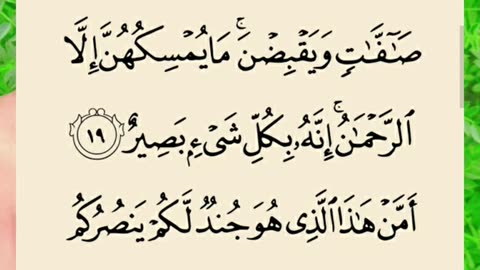 صَـٰٓفَّـٰتٍ وَيَقْبِضْنَ ۚ مَا يُمْسِكُهُنَّ إِلَّا
ٱلرَّحْمَـٰنُ ۚ إِنَّهُۥ بِكُلِّ شَىْءِۭ بَصِيرٌ ١٩
أَمَّنْ هَـٰذَا ٱلَّذِى هُوَ جُندٌ لَّكُمْ يَنصُرُكُم